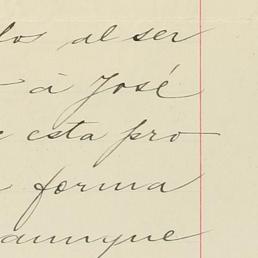 los al ser
á José
e esta pro
forma
aunque